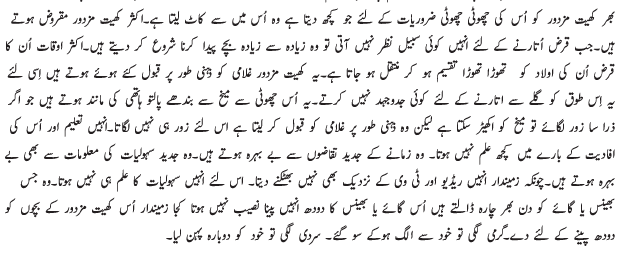 بھر کھیت مزدور کو اُس کی چھوٹی چھوٹی ضروریات کے لئے جو کچھ دیتا ہے وہ اُس میں سے کاٹ لیتا ہے۔اکثر کھیت مزدور مقروض ہوتے
ہیں۔جب قرض اُتارنے کے لئے انہیں کوئی سبیل نظر نہیں آتی تو وہ زیادہ سے زیادہ بچے پیدا کرنا شروع کر دیتے ہیں۔اکثر اوقات اُن کا
قرض اُن کی اولاد کو تھوڑا تھوڑا تقسیم ہو کر منتقل ہو جاتا ہے۔یہ کھیت مزدور غلامی کو ذہنی طور پر قبول کئے ہوئے ہوتے ہیں اِسی لئے
یہ اِس طوق کو گلے سے اتارنے کے لئے کوئی جدوجہد نہیں کرتے۔یہ اُس چھوٹی سے میخ سے بندھے پالتو ہاتھی کی مانند ہوتے ہیں جو اگر
ذرا سا زور لگائے تو میخ کو اکھیڑ سکتا ہے لیکن وہ ذہنی طور پر غلامی کو قبول کر لیتا ہے اس لئے زور ہی نہیں لگاتا۔اُنہیں تعلیم اور اُس کی
افادیت کے بارے میں کچھ علم نہیں ہوتا۔ وہ زمانے کے جدید تقاضوں سے بے بہرہ ہوتے ہیں۔وہ جدید سہولیات کی معلومات سے بھی بے
بہرہ ہوتے ہیں۔چونکہ زمیندار اُنہیں ریڈیو اور ٹی وی کے نزدیک بھی نہیں بھٹکنے دیتا۔ اس لئے اُنہیں سہولیات کا علم ہی نہیں ہوتا۔وہ جس
بھینس یا گائے کو دن بھر چارہ ڈالتے ہیں اُس گائے یا بھینس کا دودھ اُنہیں پینا نصیب نہیں ہوتا کجا زمیندار اُس کھیت مزدور کے بچوں کو
دودھ پینے کے لئے دے۔گرمی لگی تو خود سے الگ ہوکے سو گئے۔ سردی لگی تو خود کو دوبارہ پہن لیا۔